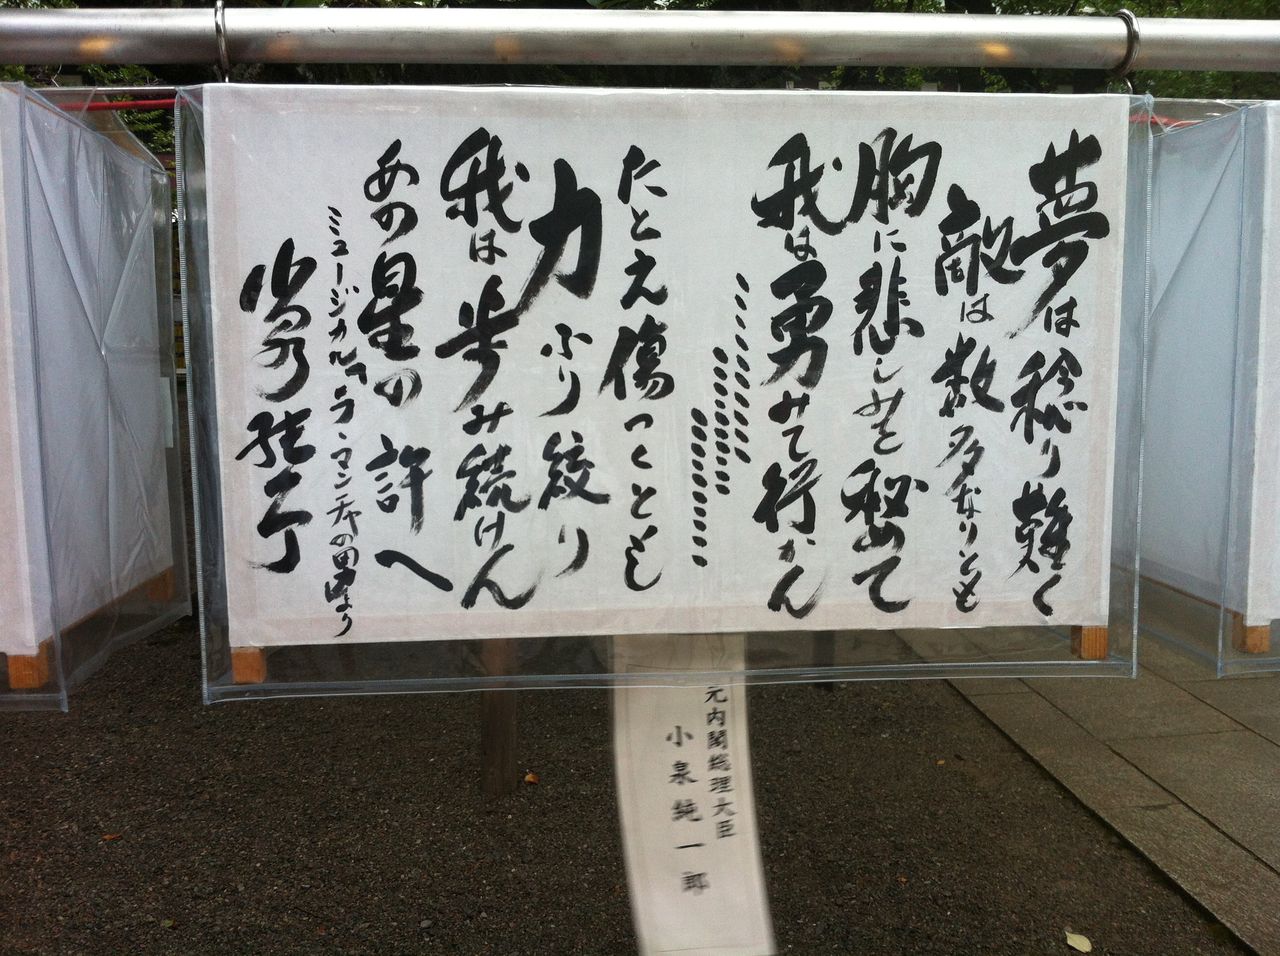 夢は稔り難く
敵は数多なりとも
胸に悲しみを秘めて
我は勇みて行かん
たとえ傷つくとも
力ふり絞り
我は歩み続けん
あの星の許へ
ミュージカル「ラ・マンチャの男」より
小泉純一郎
元内閣総理大臣
小泉純一郎